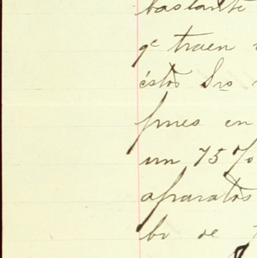 bastante
qe traen
éstos Srs
pues en
un 75%
aparatos
bo de